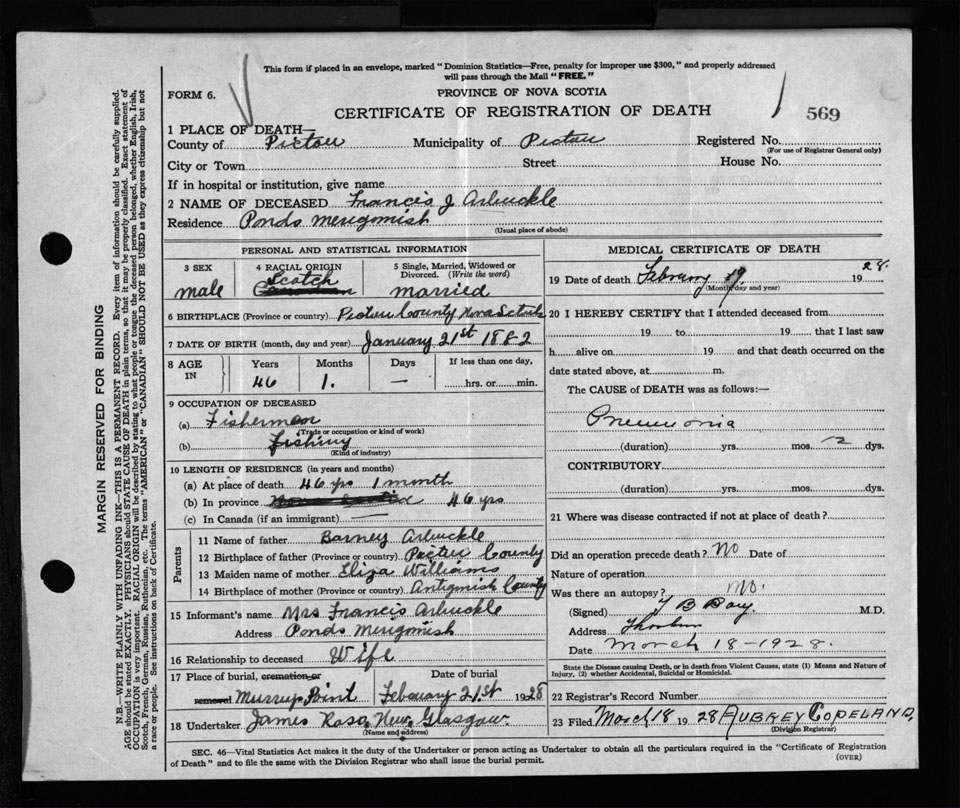 This form if placed in an envelope, marked "Dominion Statistics—Free, penalty for improper use $300," and properly addressed
will pass through the Mail "FREE."
FORM 6.
PROVINCE OF NOVA SCOTIA
CERTIFICATE OF REGISTRATION OF DEATH
569
1 PLACE OF DEATH—
County of Pictou Municipality of Pictou Registered No.
(For use of Registrar General only)
City or Town Street House No.
If in hospital or institution, give name
2 NAME OF DECEASED Francis J Arbuckle
Residence Ponds Merigomish
(Usual place of abode)
PERSONAL AND STATISTICAL INFORMATION
3 SEX 4 RACIAL ORIGIN 5 Single, Married, Widowed or Divorced. (Write the word)
male Scotch Canadian married
6 BIRTHPLACE (Province or country) Pictou County Nova Scotia
7 DATE OF BIRTH (month, day and year) January 21st 1882
8 AGE IN Years Months Days If less than one day,
46 1. — hrs. or min.
9 OCCUPATION OF DECEASED
(a) Fisherman
(Trade or occupation or kind of work)
(b) fishing
(Kind of industry)
10 LENGTH OF RESIDENCE (in years and months)
(a) At place of death 46 yrs 1 month
(b) In province 46 yrs
(c) In Canada (if an immigrant) —
Parents
11 Name of father Barney Arbuckle
12 Birthplace of father (Province or country) Pictou County
13 Maiden name of mother Eliza Williams
14 Birthplace of mother (Province or country) Antignish County
15 Informant's name Mrs Francis Arbuckle
Address Ponds Merigomish
16 Relationship to deceased Wife
17 Place of burial, cremation or removal Date of burial
Murrys Point February 21st 1928
18 Undertaker James Ross New Glasgow
(Name and address)
MEDICAL CERTIFICATE OF DEATH
19 Date of death February 19, 1928.
(Month, day and year)
20 I HEREBY CERTIFY that I attended deceased from
19 to 19 that I last saw
h alive on 19 and that death occurred on the
date stated above, at m.
The CAUSE of DEATH was as follows:—
Pneumonia
(duration) yrs. mos. 12 dys.
CONTRIBUTORY
(duration) yrs. mos. dys.
21 Where was disease contracted if not at place of death?
Did an operation precede death? No Date of
Nature of operation
Was there an autopsy? No.
(Signed) M.D.
Address Thorburn
Date March 18-1928.
State the Disease causing Death, or in death from Violent Causes, state (1) Means and Nature of
Injury, (2) whether Accidental, Suicidal or Homicidal.
22 Registrar's Record Number
23 Filed March 18 1928 AUBREY COPELAND,
(Division Registrar)
SEC. 46—Vital Statistics Act makes it the duty of the Undertaker or person acting as Undertaker to obtain all the particulars required in the "Certificate of Registration
of Death" and to file the same with the Division Registrar who shall issue the burial permit.
(OVER)
MARGIN RESERVED FOR BINDING
N.B.—WRITE PLAINLY, WITH UNFADING INK—THIS IS A PERMANENT RECORD. Every item of information should be carefully supplied.
AGE should be stated EXACTLY. PHYSICIANS should STATE CAUSE OF DEATH in plain terms, so that it may be properly classified. Exact statement of
OCCUPATION is very important. RACIAL ORIGIN will be described by stating to what people or tongue the deceased person belonged, whether English, Irish,
Scotch, French, German, Russian, Ruthenian, etc. The terms "AMERICAN" or "CANADIAN" SHOULD NOT BE USED as they express citizenship but not
a race or people. See instructions on back of Certificate.